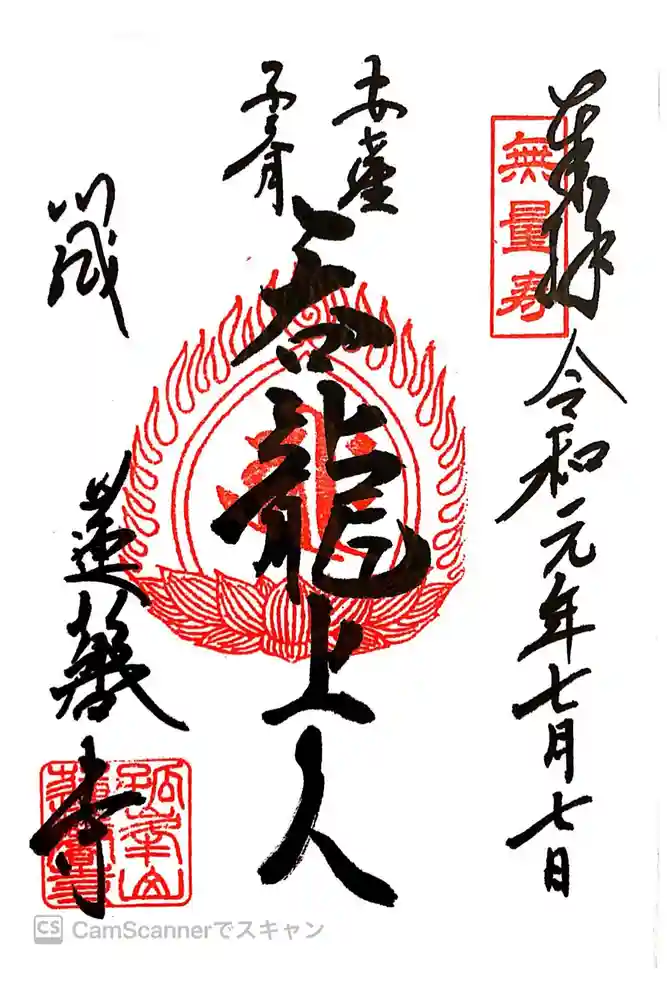 奉拝
無量寿
令和元年七月七日
安産
子育
呑龍上人
川越
蓮馨寺
孤峯山
蓮馨寺
CS CamScannerでスキャン